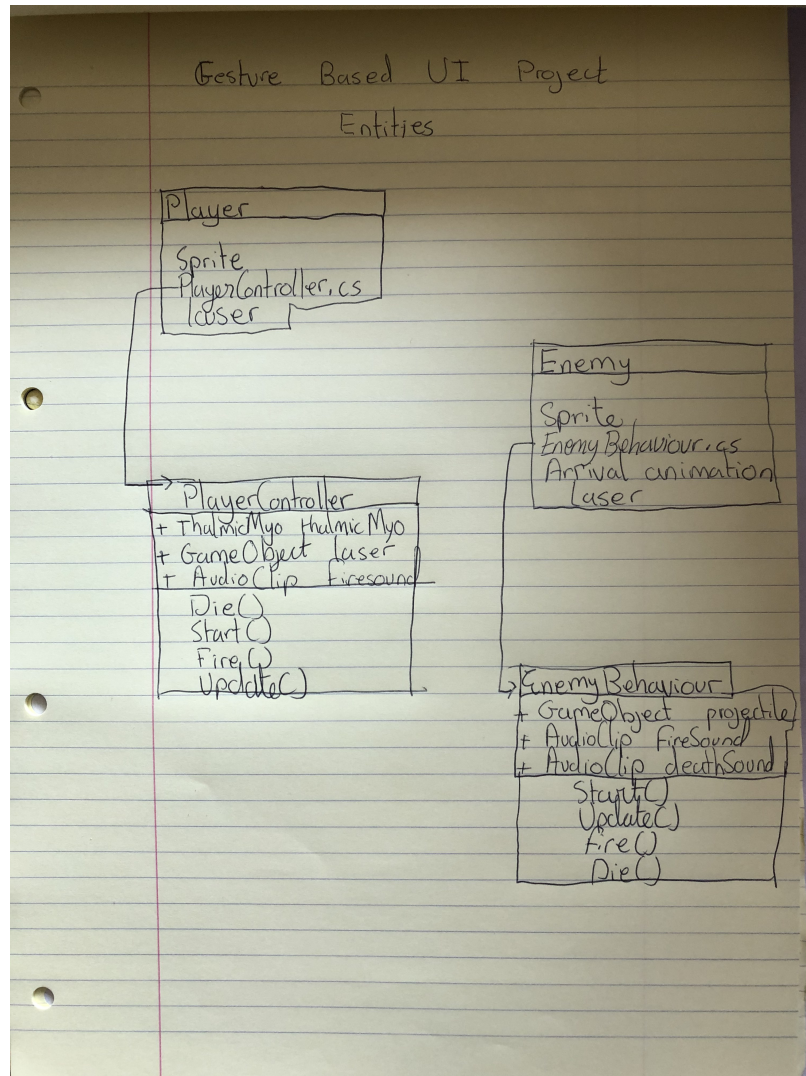 Gesture Based UI Project
Entities
Player
Sprite
PlayerController.cs
laser
Enemy
Sprite
EnemyBehaviour.cs
Arrival animation
Laser
PlayerController
+ ThalmicMyo thalmicMyo
+ GameObject laser
+ AudioClip firesound
Die()
Start()
Fire()
Update()
EnemyBehaviour
+ GameObject projectile
+ AudioClip fireSound
+ AudioClip deathSound
Start()
Update()
Fire()
Die()